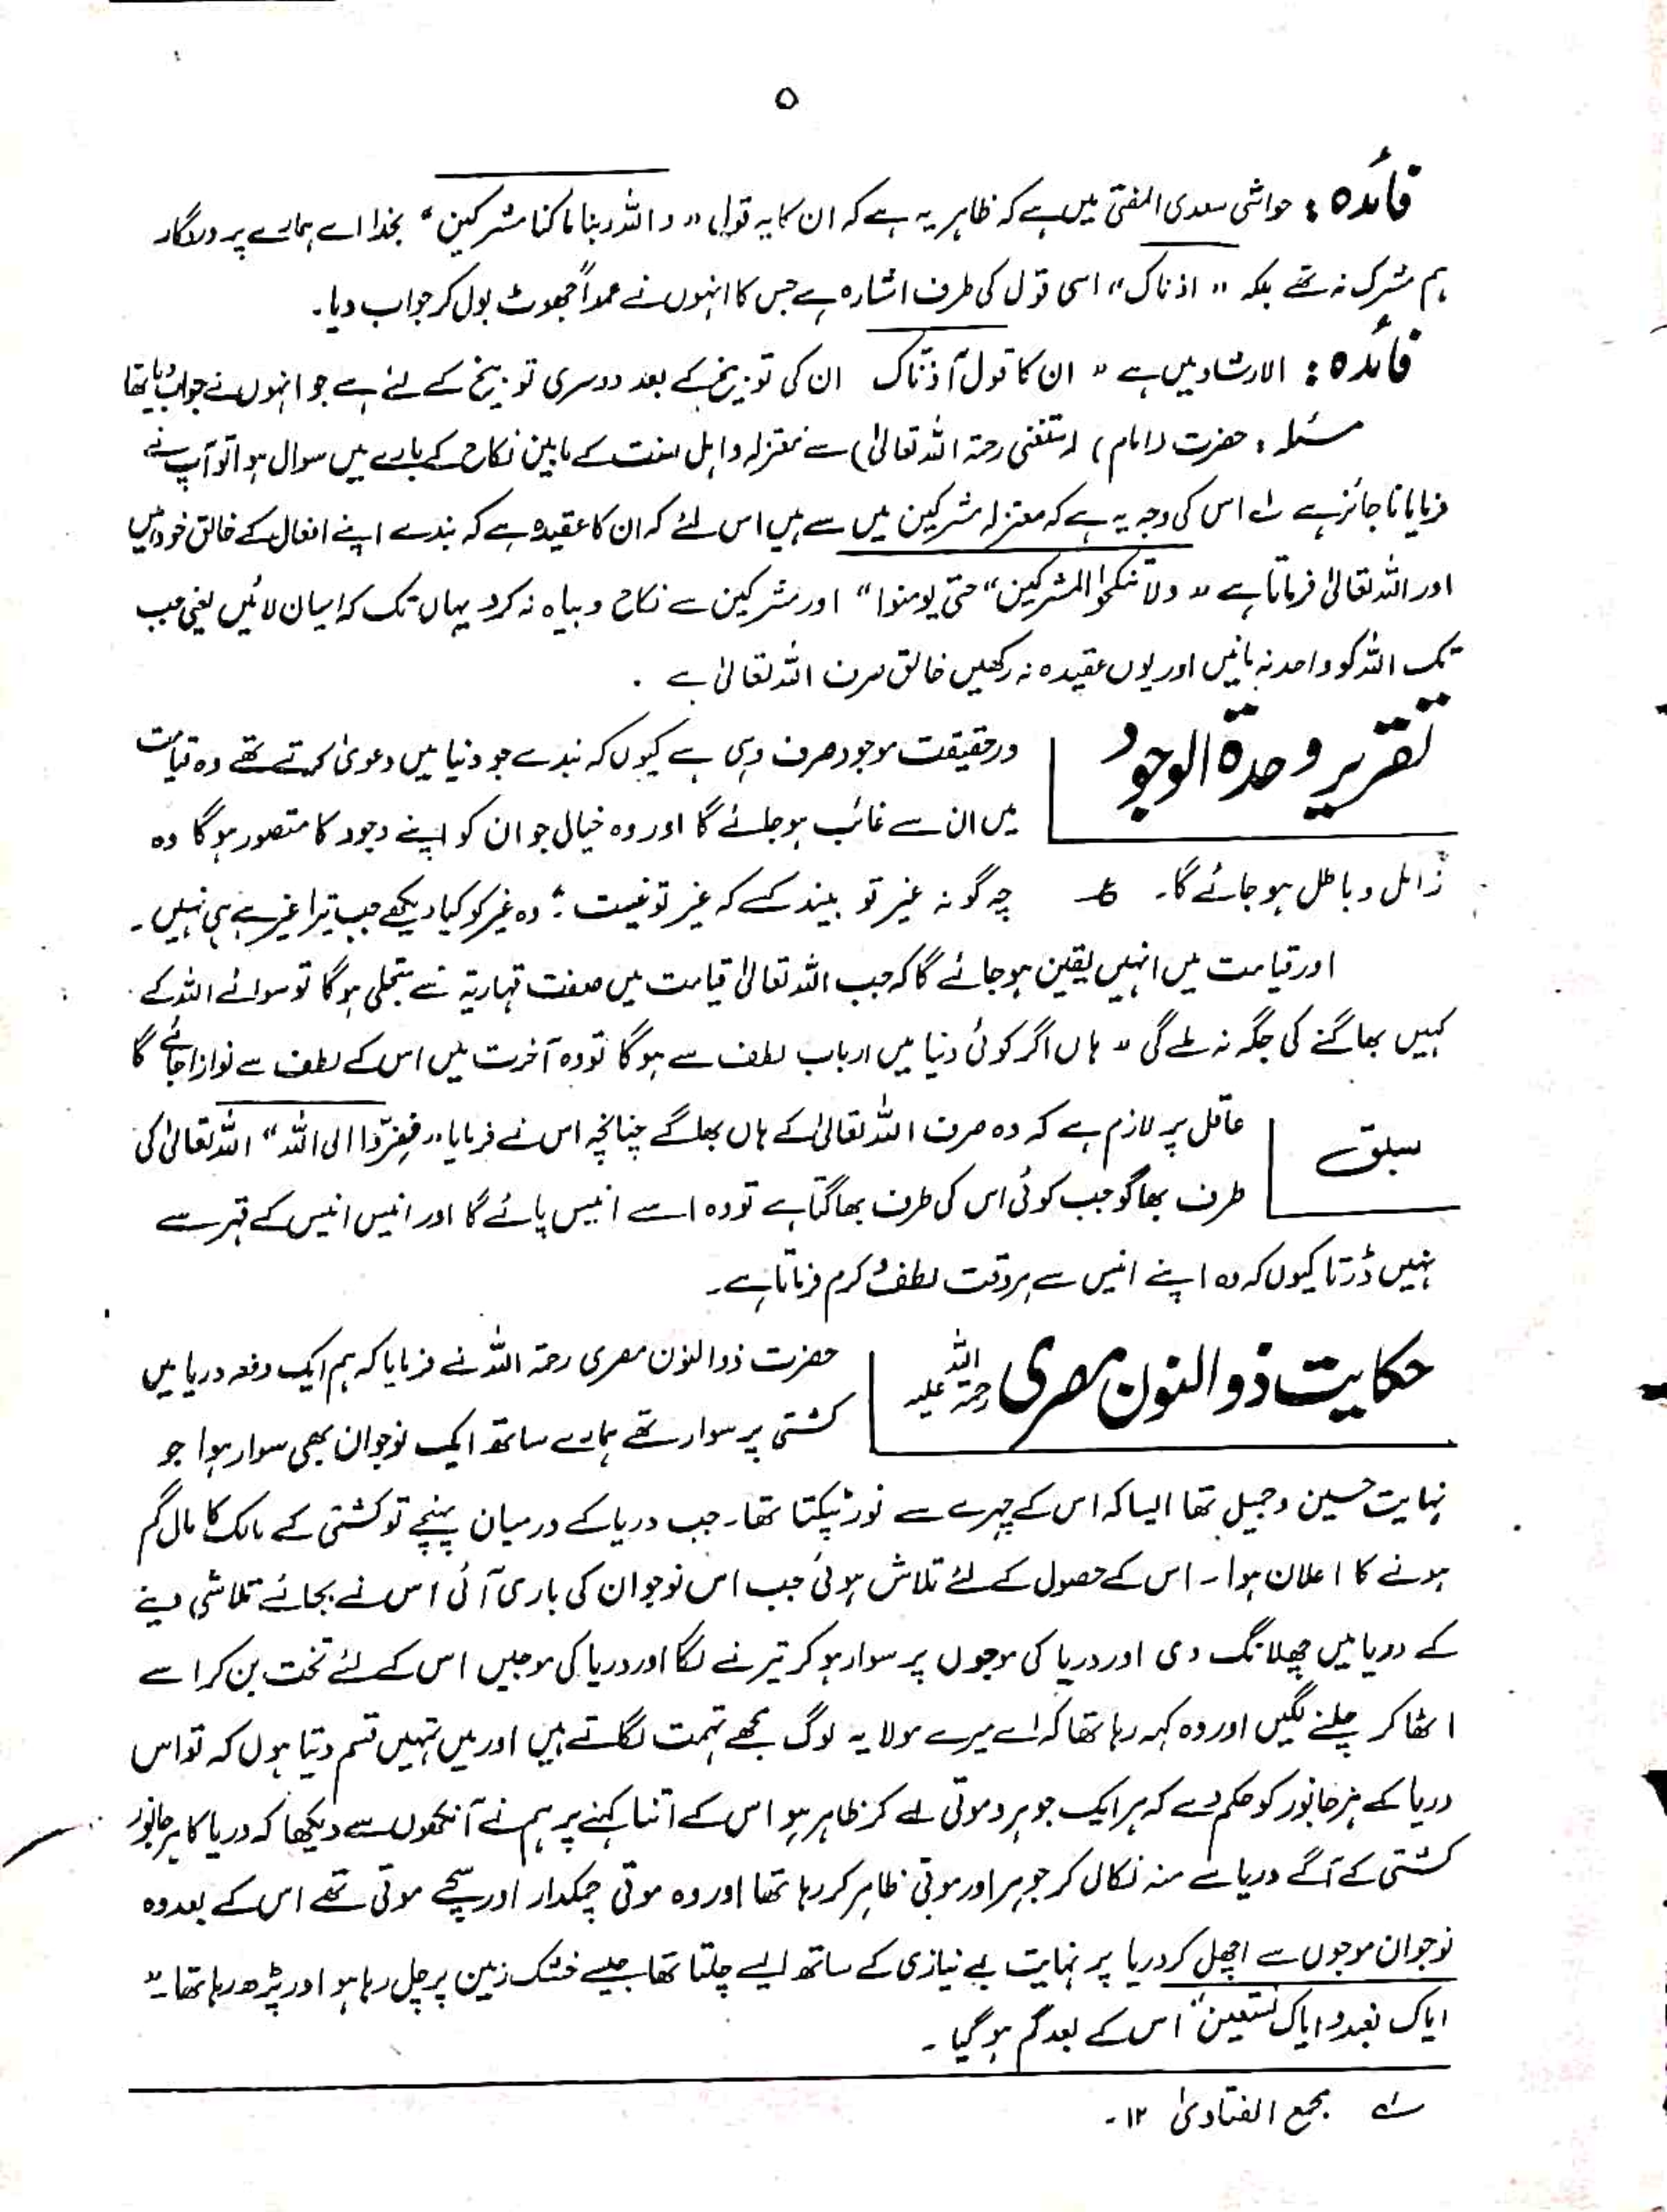 ۵
فائدہ : حواشی سعدی المفتی میں ہے کہ ظاہر یہ ہے کہ ان کا یہ قول " واللہ ربنا ما کنا مشرکین " بخدا اے ہمارے پروردگار
ہم مشرک نہ تھے بلکہ " اذناک " اسی قول کی طرف اشارہ ہے جس کا انہوں نے عمداً جھوٹ بول کر جواب دیا۔
فائدہ : الارشاد میں ہے " ان کا قول آذنّاک ان کی توبیخ کے بعد دوسری توبیخ کے لئے ہے جو انہوں نے جواب دیا تھا
مسئلہ : حضرت (امام) رستغنی رحمۃ اللہ تعالیٰ) سے معتزلہ و اہل سنت کے مابین نکاح کے بارے میں سوال ہوا تو آپ نے
فرمایا ناجائز ہے لہ اس کی وجہ یہ ہے کہ معتزلہ مشرکین میں سے ہیں اس لئے کہ ان کا عقیدہ ہے کہ بندے اپنے افعال کے خالق خود ہیں
اور اللہ تعالیٰ فرماتا ہے " ولا تنکحوا المشرکین " حتی یومنوا " اور مشرکین سے نکاح و بیاہ نہ کرو یہاں تک کہ ایمان لائیں یعنی جب
تک اللہ کو واحد نہ مانیں اور یوں عقیدہ نہ رکھیں خالق صرف اللہ تعالیٰ ہے ۔
تقریر وحدۃ الوجود
درحقیقت موجود صرف وہی ہے کیوں کہ بندے جو دنیا میں دعویٰ کرتے تھے وہ قیامت
میں ان سے غائب ہو جائے گا اور وہ خیال جو ان کو اپنے وجود کا متصور ہوگا وہ
زائل و باطل ہو جائے گا۔ ع چہ گونہ غیر تو بیند کسے کہ غیر تو نیست : وہ غیر کو کیا دیکھے جب تیرا غیر ہے ہی نہیں۔
اور قیامت میں انہیں یقین ہو جائے گا کہ جب اللہ تعالیٰ قیامت میں صفت قہاریۃ سے متجلی ہوگا تو سوائے اللہ کے
کہیں بھاگنے کی جگہ نہ ملے گی " ہاں اگر کوئی دنیا میں ارباب لطف سے ہوگا تو وہ آخرت میں اس کے لطف سے نوازا جائے گا
سبق
عاقل پر لازم ہے کہ وہ صرف اللہ تعالیٰ کے ہاں بھاگے چنانچہ اس نے فرمایا " ففِرّوا الی اللہ " اللہ تعالیٰ کی
طرف بھاگو جب کوئی اس کی طرف بھاگتا ہے تو وہ اسے انیس پائے گا اور انیس انیس کے قہر سے
نہیں ڈرتا کیوں کہ وہ اپنے انیس سے ہر وقت لطف و کرم فرماتا ہے۔
حکایت ذوالنون مصری رحمۃ اللہ علیہ
حضرت ذوالنون مصری رحمۃ اللہ نے فرمایا کہ ہم ایک دفعہ دریا میں
کشتی پر سوار تھے ہمارے ساتھ ایک نوجوان بھی سوار ہوا جو
نہایت حسین و جمیل تھا ایسا کہ اس کے چہرے سے نور ٹپکتا تھا۔ جب دریا کے درمیان پہنچے تو کشتی کے مالک کا مال گم
ہونے کا اعلان ہوا۔ اس کے حصول کے لئے تلاش ہوئی جب اس نوجوان کی باری آئی اس نے بجائے تلاشی دینے
کے دریا میں چھلانگ دی اور دریا کی موجوں پر سوار ہو کر تیرنے لگا اور دریا کی موجیں اس کے لئے تخت بن کر اسے
اٹھا کر چلنے لگیں اور وہ کہہ رہا تھا کہ اے میرے مولا یہ لوگ مجھے تہمت لگاتے ہیں اور میں تمہیں قسم دیتا ہوں کہ تو اس
دریا کے ہر جانور کو حکم دے کہ ہر ایک جوہر و موتی لے کر ظاہر ہو اس کے اتنا کہنے پر ہم نے آنکھوں سے دیکھا کہ دریا کا ہر جانور
کشتی کے آگے دریا سے منہ نکال کر جوہر اور موتی ظاہر کر رہا تھا اور وہ موتی چمکدار اور سچے موتی تھے اس کے بعد وہ
نوجوان موجوں سے اچھل کر دریا پر نہایت بے نیازی کے ساتھ ایسے چلتا تھا جیسے خشک زمین پر چل رہا ہو اور پڑھ رہا تھا۔ "
ایاک نعبد و ایاک نستعین " اس کے بعد گم ہو گیا۔
لہ مجمع الفتاویٰ ۱۲۔